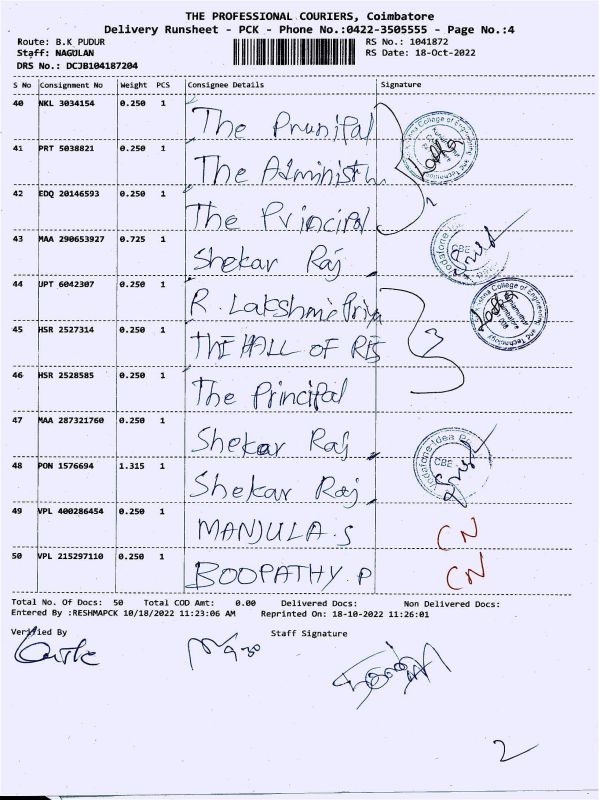 THE PROFESSIONAL COURIERS, Coimbatore
Delivery Runsheet - PCK - Phone No.:0422-3505555 - Page No.:4
Route: B.K PUDUR RS No.: 1041872
Staff: NAGULAN RS Date: 18-Oct-2022
DRS No.: DCJB104187204
S No Consignment No Weight PCS Consignee Details Signature
40 NKL 3034154 0.250 1 The Prunipal
41 PRT 5038821 0.250 1 The Administ
42 EDQ 20146593 0.250 1 The Principal
2
43 MAA 290653927 0.725 1 Shekar Raj
44 UPT 6042307 0.250 1 R Lakshmi Priya
45 HSR 2527314 0.250 1 THE HALL OF RES
3
46 HSR 2528585 0.250 1 The Principal
47 MAA 287321760 0.250 1 Shekar Raj
48 PON 1576694 1.315 1 Shekar Raj
49 VPL 400286454 0.250 1 MANJULA.S CN
50 VPL 215297110 0.250 1 BOOPATHY.P CN
Total No. Of Docs: 50 Total COD Amt: 0.00 Delivered Docs: Non Delivered Docs:
Entered By :RESHMAPCK 10/18/2022 11:23:06 AM Reprinted On: 18-10-2022 11:26:01
Verified By Staff Signature
2